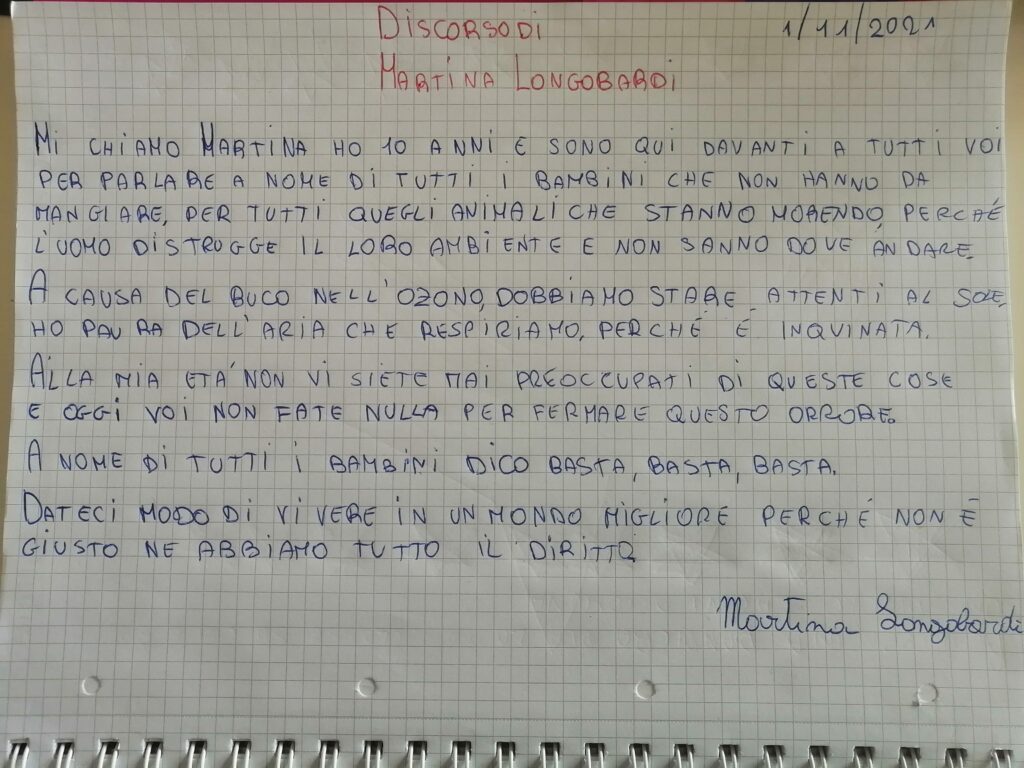 DISCORSO DI
1/11/2021
MARTINA LONGOBARDI
MI CHIAMO MARTINA HO 10 ANNI E SONO QUI DAVANTI A TUTTI VOI
PER PARLARE A NOME DI TUTTI I BAMBINI CHE NON HANNO DA
MANGIARE, PER TUTTI QUEGLI ANIMALI CHE STANNO MORENDO, PERCHÉ
L'UOMO DISTRUGGE IL LORO AMBIENTE E NON SANNO DOVE ANDARE.
A CAUSA DEL BUCO NELL'OZONO, DOBBIAMO STARE ATTENTI AL SOLE,
HO PAURA DELL'ARIA CHE RESPIRIAMO, PERCHÉ É INQUINATA.
ALLA MIA ETÀ NON VI SIETE MAI PREOCCUPATI DI QUESTE COSE
E OGGI VOI NON FATE NULLA PER FERMARE QUESTO ORRORE.
A NOME DI TUTTI I BAMBINI DICO BASTA, BASTA, BASTA.
DATECI MODO DI VIVERE IN UN MONDO MIGLIORE PERCHÉ NON É
GIUSTO NE ABBIAMO TUTTO IL DIRITTO.
Martina Longobardi